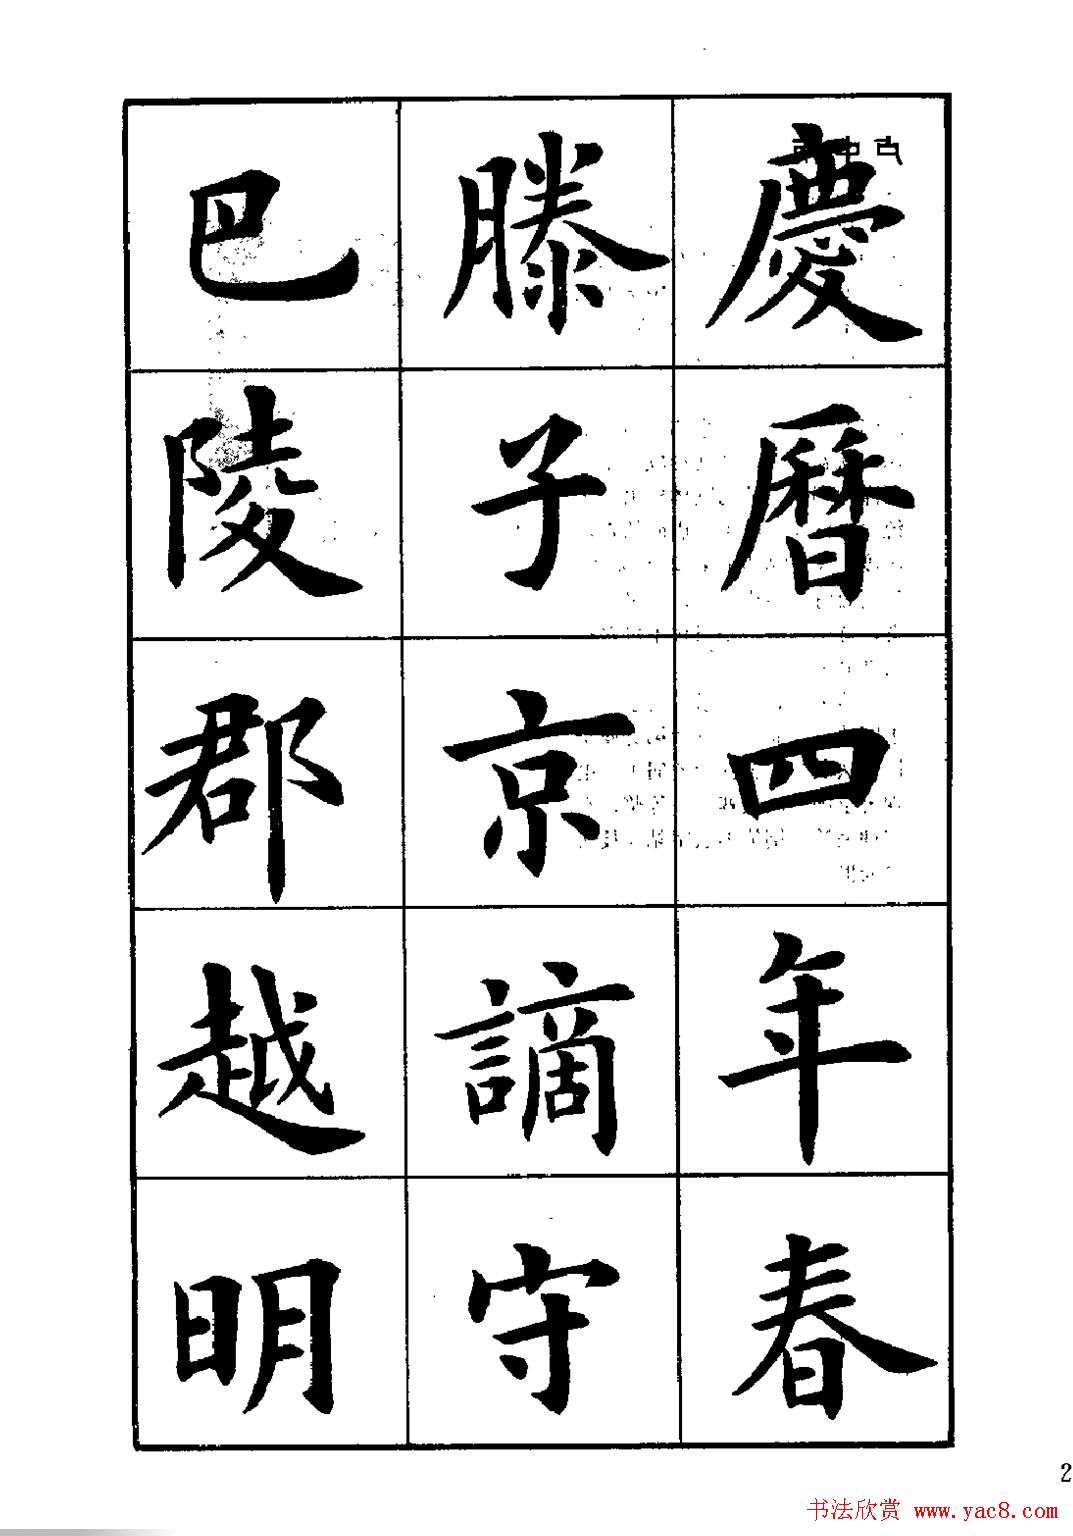 慶曆四年春
滕子京謫守
巴陵郡越明
2
书法欣赏 www.yac8.com